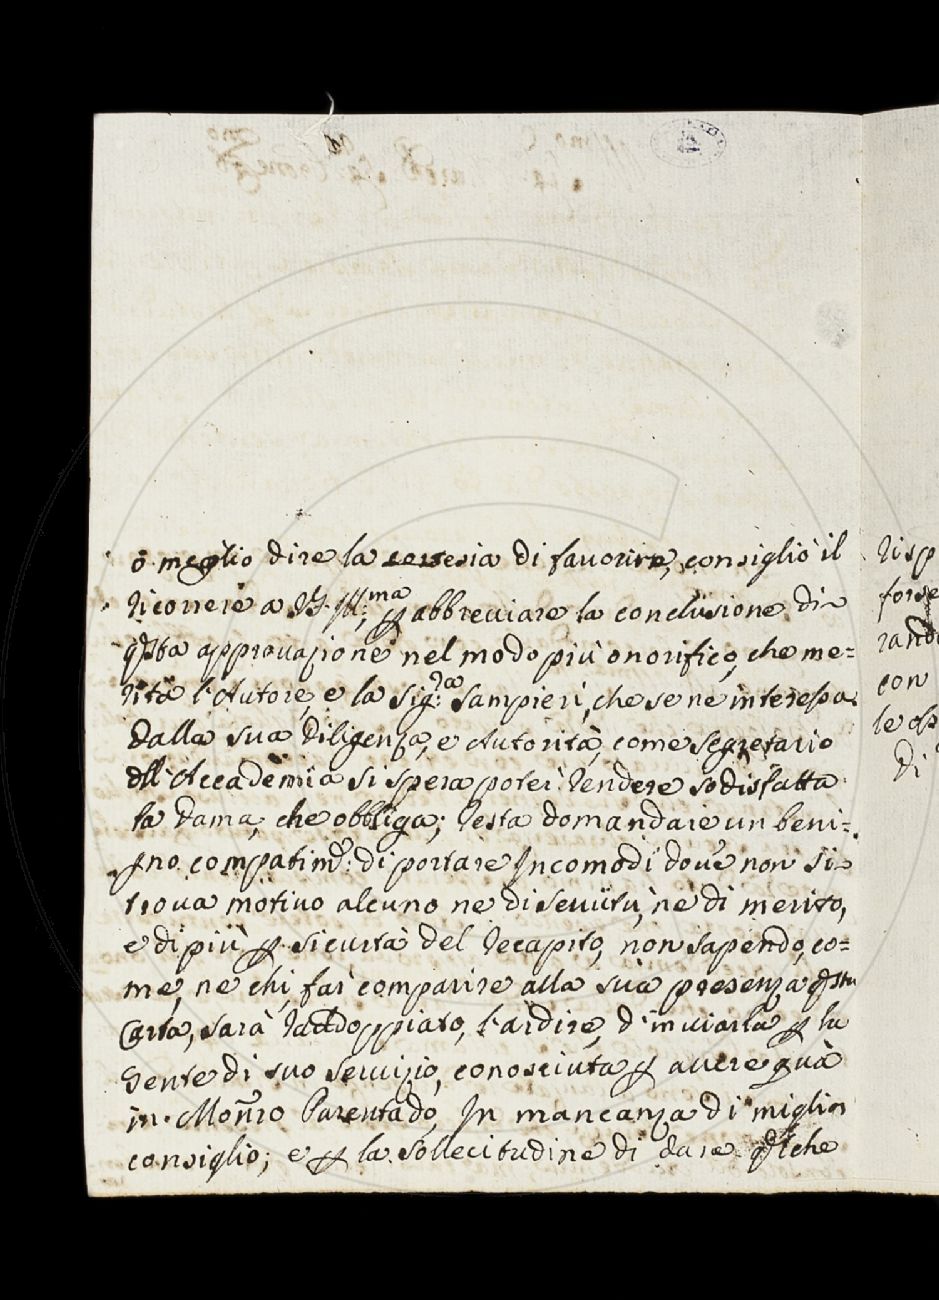 o meglio dire la cortesia di favorire, consigliò il
ricorrere a V.S. Ill:ma, p abbreviare la conclusione di
qsta approvazione nel modo più onorifico, che me=
rita l'Autore, e la Sig:ra Sampieri, che se ne interessa.
Dalla sua diligenza, e Autorità, come segretario
dll'Accademia si spera poter rendere sodisfatta
la Dama, che obbliga; resta domandare un beni=
gno compatimto: di portare Incomodi dove non si
trova motivo alcuno ne di servitù, nè di merito,
e di più p sicurtà del recapito, non sapendo, co=
me, ne chi, far comparire alla sua presenza qsta
Carta, sarà raddoppiato, l'ardire, d'inviarla p la
Gente di suo servizio, conosciuta p avere quà
in Monro Parentado, In mancanza di miglior
consiglio; e p la sollecitudine di dare qlche
risp
forse
rand
con
le os
di